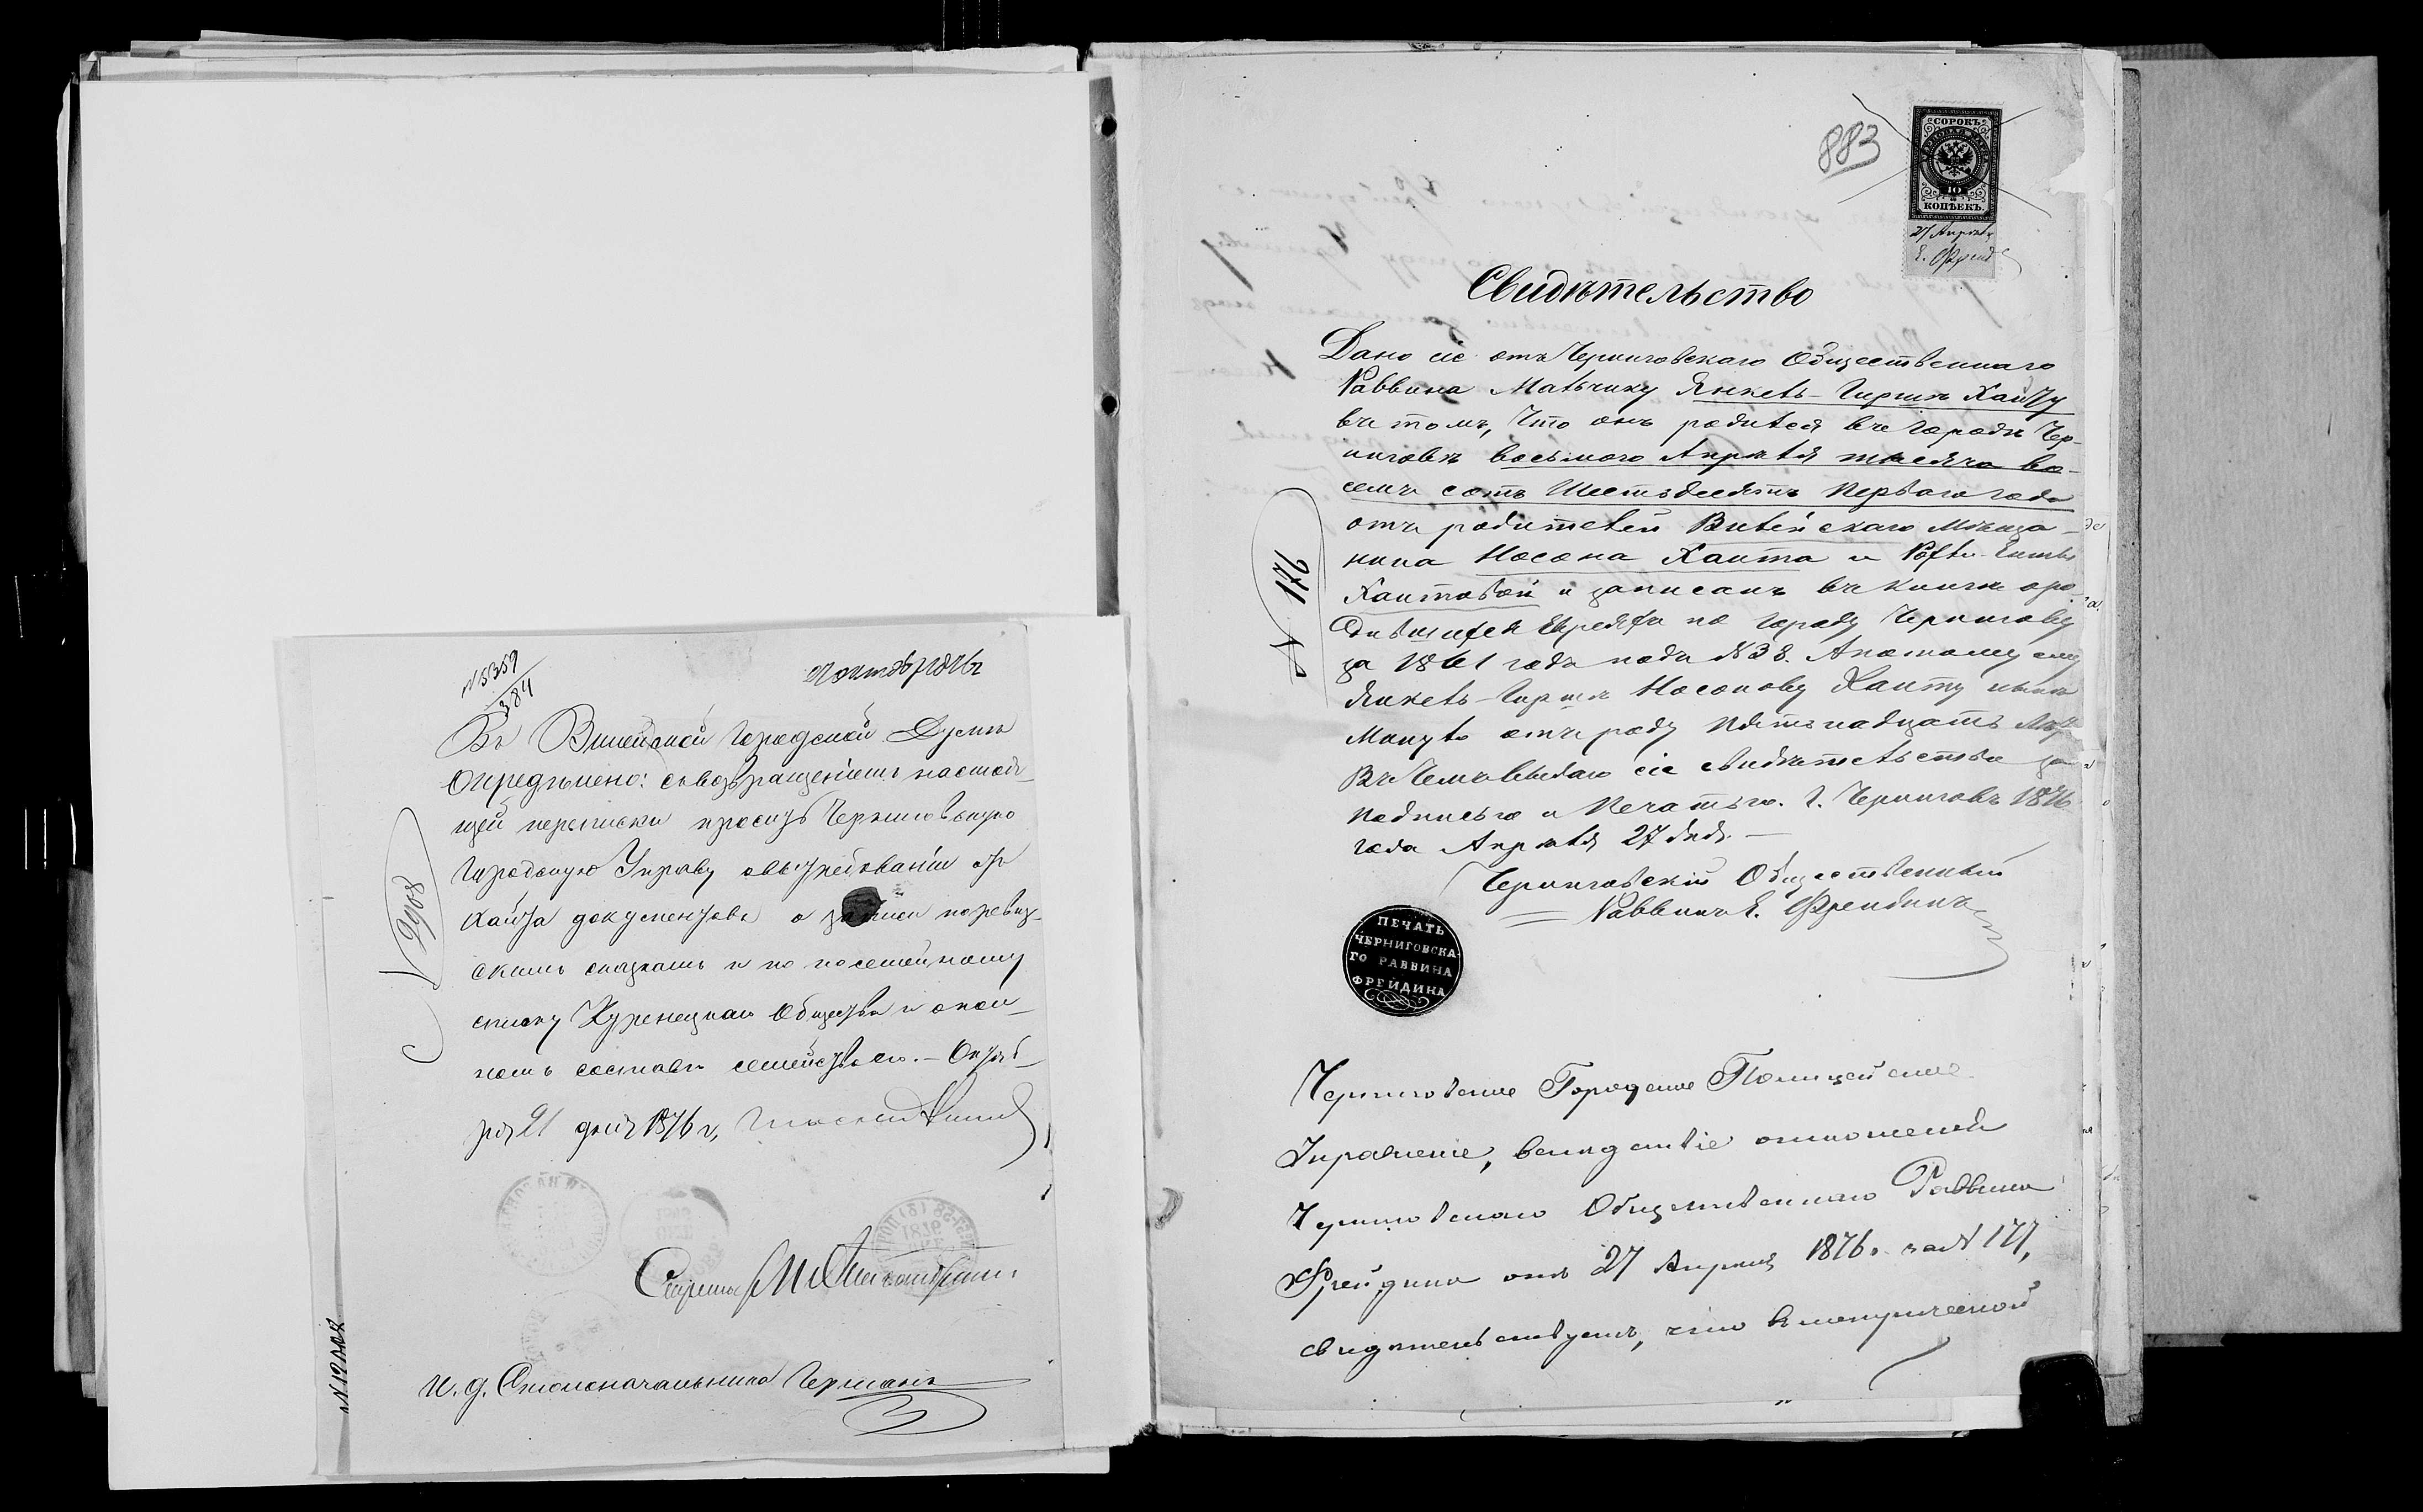 №5359
384
Въ Вилейской Городской Думѣ
Опредѣлено: съ возвращеніемъ настоя-
щей переписки просить Черниговскую
Городскую Управу
Хаита документовъ о записи по ревиз-
скимъ сказкамъ и по посемейному
списку Куренецкаго Общества и
номъ составѣ семейства его. – Октяб-
ря 21 дня 1876 г,
Секретарь
И. д. Столоначальника Германъ
9908
№12008
883
СОРОКЪ
10
КОПѢЕКЪ.
27 Апрѣля
Е. Фрейд
Свидѣтельство
Дано сіе отъ Черниговскаго Общественнаго
Раввина Мальчику Янкель-Гиршъ Хаиту
въ томъ, что онъ родился въ городѣ Чер-
ниговѣ восьмого Апрѣля тысяча во-
семь сотъ Шестьдесятъ Перваго года
отъ родителей Вилейскаго Мѣща-
нина Носона Хаита и
Хаитовой и записанъ въ книгѣ о ро-
дившихся Евреяхъ по городу Чернигову
за 1861 годъ подъ №38. А потому ему
Янкель-Гиршъ Носонову Хаиту нынѣ
Минуло отъ роду Пятьнадцать Лѣтъ
Въ чемъ выдаю сіе свидѣтельство за
подписью и Печатью. Г. Черниговъ 1876
года Апрѣля 27 дня. —
Черниговскій Общественный
Раввинъ Е. Фрейдинъ
ПЕЧАТЬ
ЧЕРНИГОВСКА-
ГО РАВВИНА
ФРЕЙДИНА
Черниговское Городское Полицейское
Управленіе, вслѣдствіе отношенія
Черниговскаго Общественнаго Раввина
Фрейдина отъ 27 Апрѣля 1876 г. за № 177,
свидѣтельствуетъ, что въ метрической